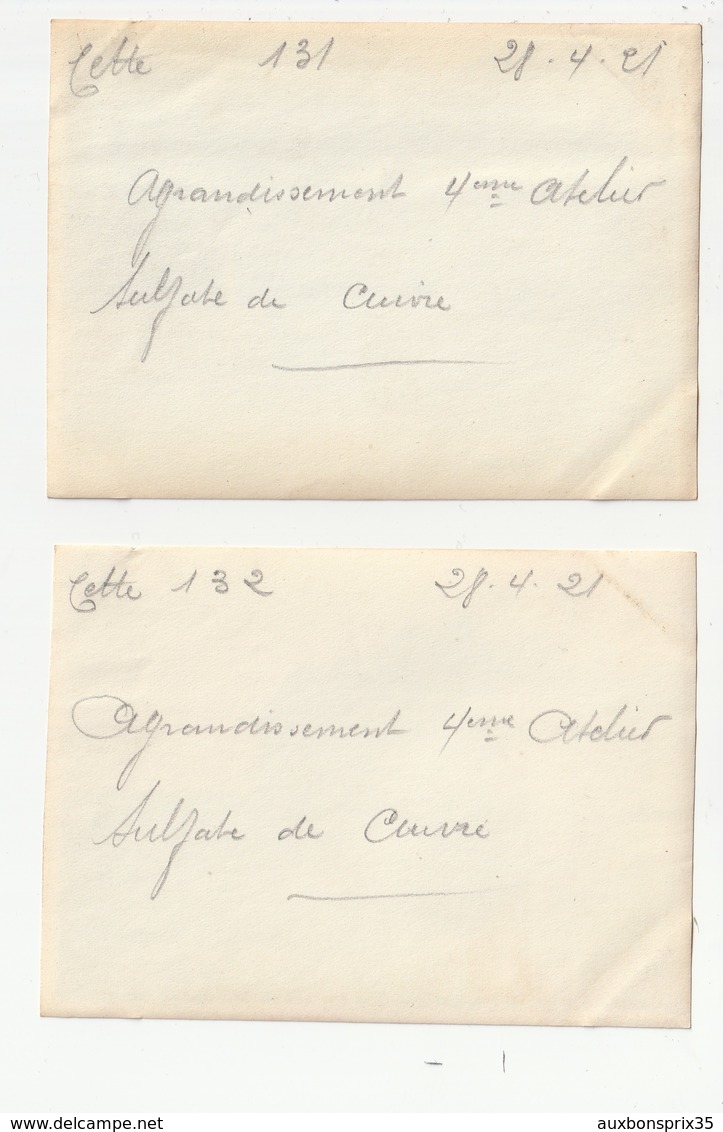 Cette 131 28.4.21
Agrandissement 4eme Atelier
Sulfate de Cuivre
Cette 132 28.4.21
Agrandissement 4eme Atelier
Sulfate de Cuivre
www.delcampe.net
auxbonsprix35